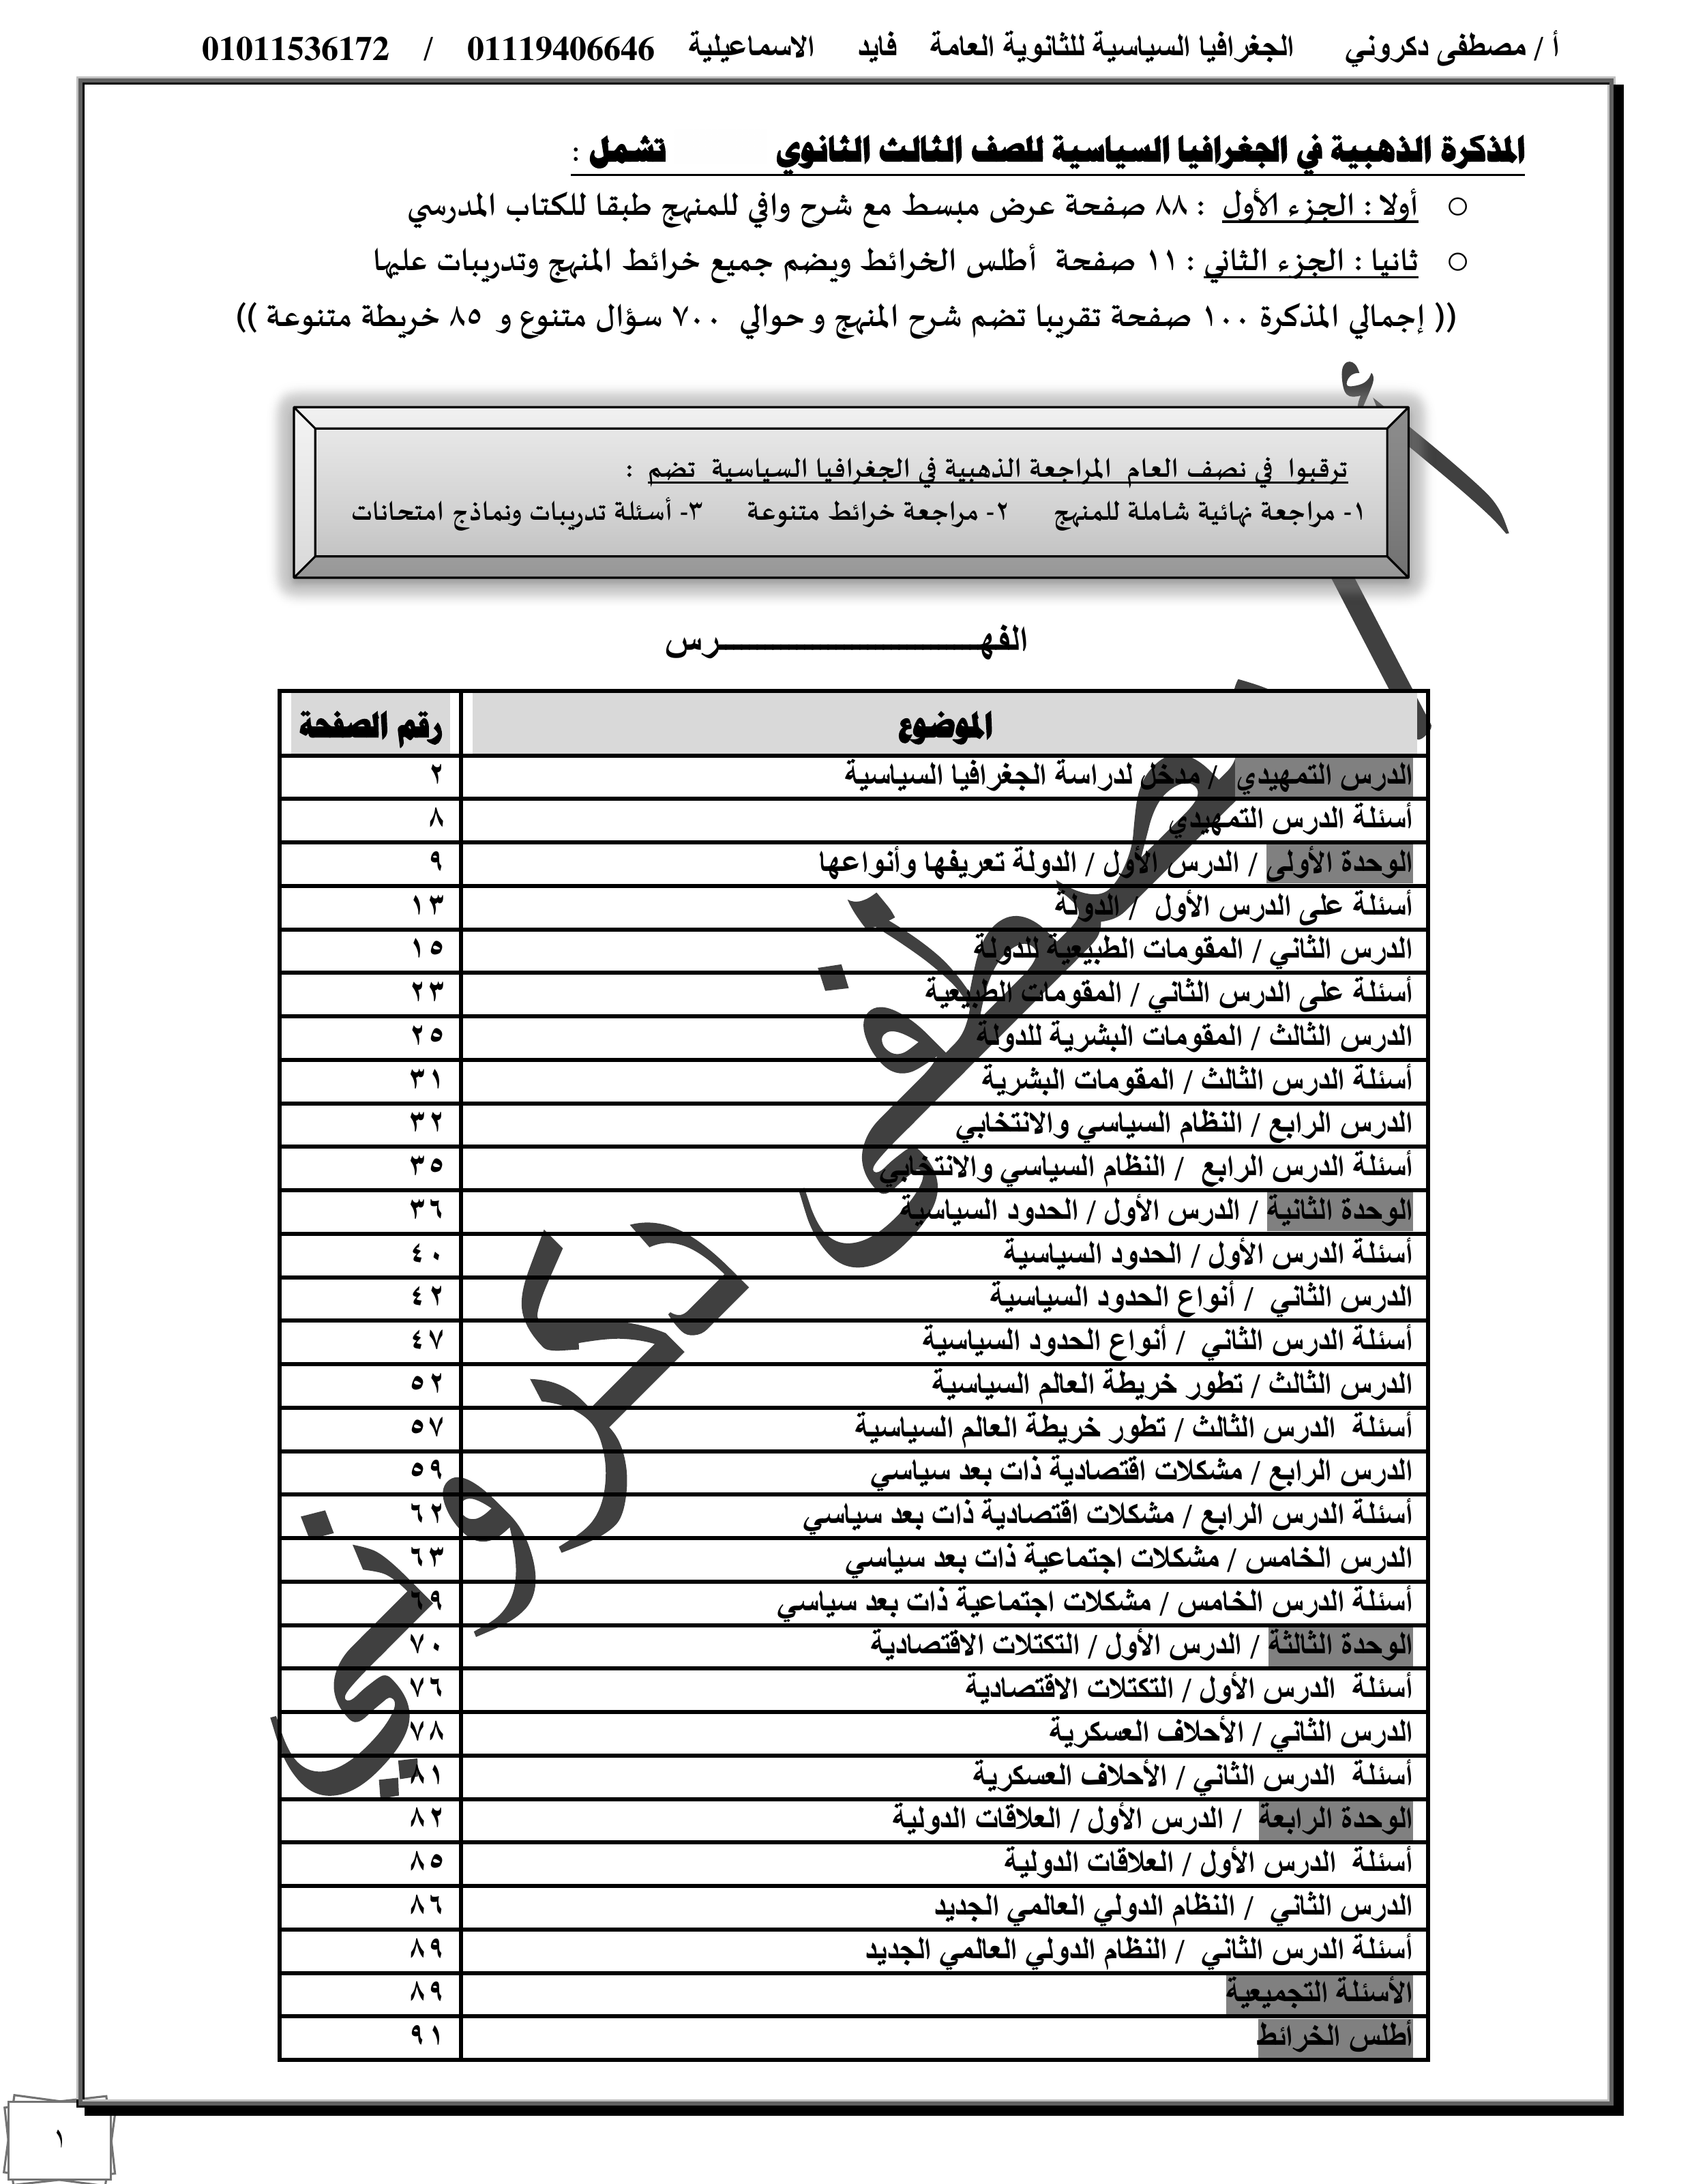 أ / مصطفى دكروني الجغرافيا السياسية للثانوية العامة فايد الاسماعيلية 01119406646 / 01011536172
المذكرة الذهبية في الجغرافيا السياسية للصف الثالث الثانوي تشمل :
○ أولا : الجزء الأول : ٨٨ صفحة عرض مبسط مع شرح وافي للمنهج طبقا للكتاب المدرسي
○ ثانيا : الجزء الثاني : ١١ صفحة أطلس الخرائط ويضم جميع خرائط المنهج وتدريبات عليها
(( إجمالي المذكرة ١٠٠ صفحة تقريبا تضم شرح المنهج و حوالي ٧٠٠ سؤال متنوع و ٨٥ خريطة متنوعة ))
ترقبوا في نصف العام المراجعة الذهبية في الجغرافيا السياسية تضم :
١- مراجعة نهائية شاملة للمنهج ٢- مراجعة خرائط متنوعة ٣- أسئلة تدريبات ونماذج امتحانات
الفهـــــــــــــــــــــرس
الموضوع رقم الصفحة
الدرس التمهيدي / مدخل لدراسة الجغرافيا السياسية ٢
أسئلة الدرس التمهيدي ٨
الوحدة الأولى / الدرس الأول / الدولة تعريفها وأنواعها ٩
أسئلة على الدرس الأول / الدولة ١٣
الدرس الثاني / المقومات الطبيعية للدولة ١٥
أسئلة على الدرس الثاني / المقومات الطبيعية ٢٣
الدرس الثالث / المقومات البشرية للدولة ٢٥
أسئلة الدرس الثالث / المقومات البشرية ٣١
الدرس الرابع / النظام السياسي والانتخابي ٣٢
أسئلة الدرس الرابع / النظام السياسي والانتخابي ٣٥
الوحدة الثانية / الدرس الأول / الحدود السياسية ٣٦
أسئلة الدرس الأول / الحدود السياسية ٤٠
الدرس الثاني / أنواع الحدود السياسية ٤٢
أسئلة الدرس الثاني / أنواع الحدود السياسية ٤٧
الدرس الثالث / تطور خريطة العالم السياسية ٥٢
أسئلة الدرس الثالث / تطور خريطة العالم السياسية ٥٧
الدرس الرابع / مشكلات اقتصادية ذات بعد سياسي ٥٩
أسئلة الدرس الرابع / مشكلات اقتصادية ذات بعد سياسي ٦٢
الدرس الخامس / مشكلات اجتماعية ذات بعد سياسي ٦٣
أسئلة الدرس الخامس / مشكلات اجتماعية ذات بعد سياسي ٦٩
الوحدة الثالثة / الدرس الأول / التكتلات الاقتصادية ٧٠
أسئلة الدرس الأول / التكتلات الاقتصادية ٧٦
الدرس الثاني / الأحلاف العسكرية ٧٨
أسئلة الدرس الثاني / الأحلاف العسكرية ٨١
الوحدة الرابعة / الدرس الأول / العلاقات الدولية ٨٢
أسئلة الدرس الأول / العلاقات الدولية ٨٥
الدرس الثاني / النظام الدولي العالمي الجديد ٨٦
أسئلة الدرس الثاني / النظام الدولي العالمي الجديد ٨٩
الأسئلة التجميعية ٨٩
أطلس الخرائط ٩١
أ / مصطفى دكروني
١